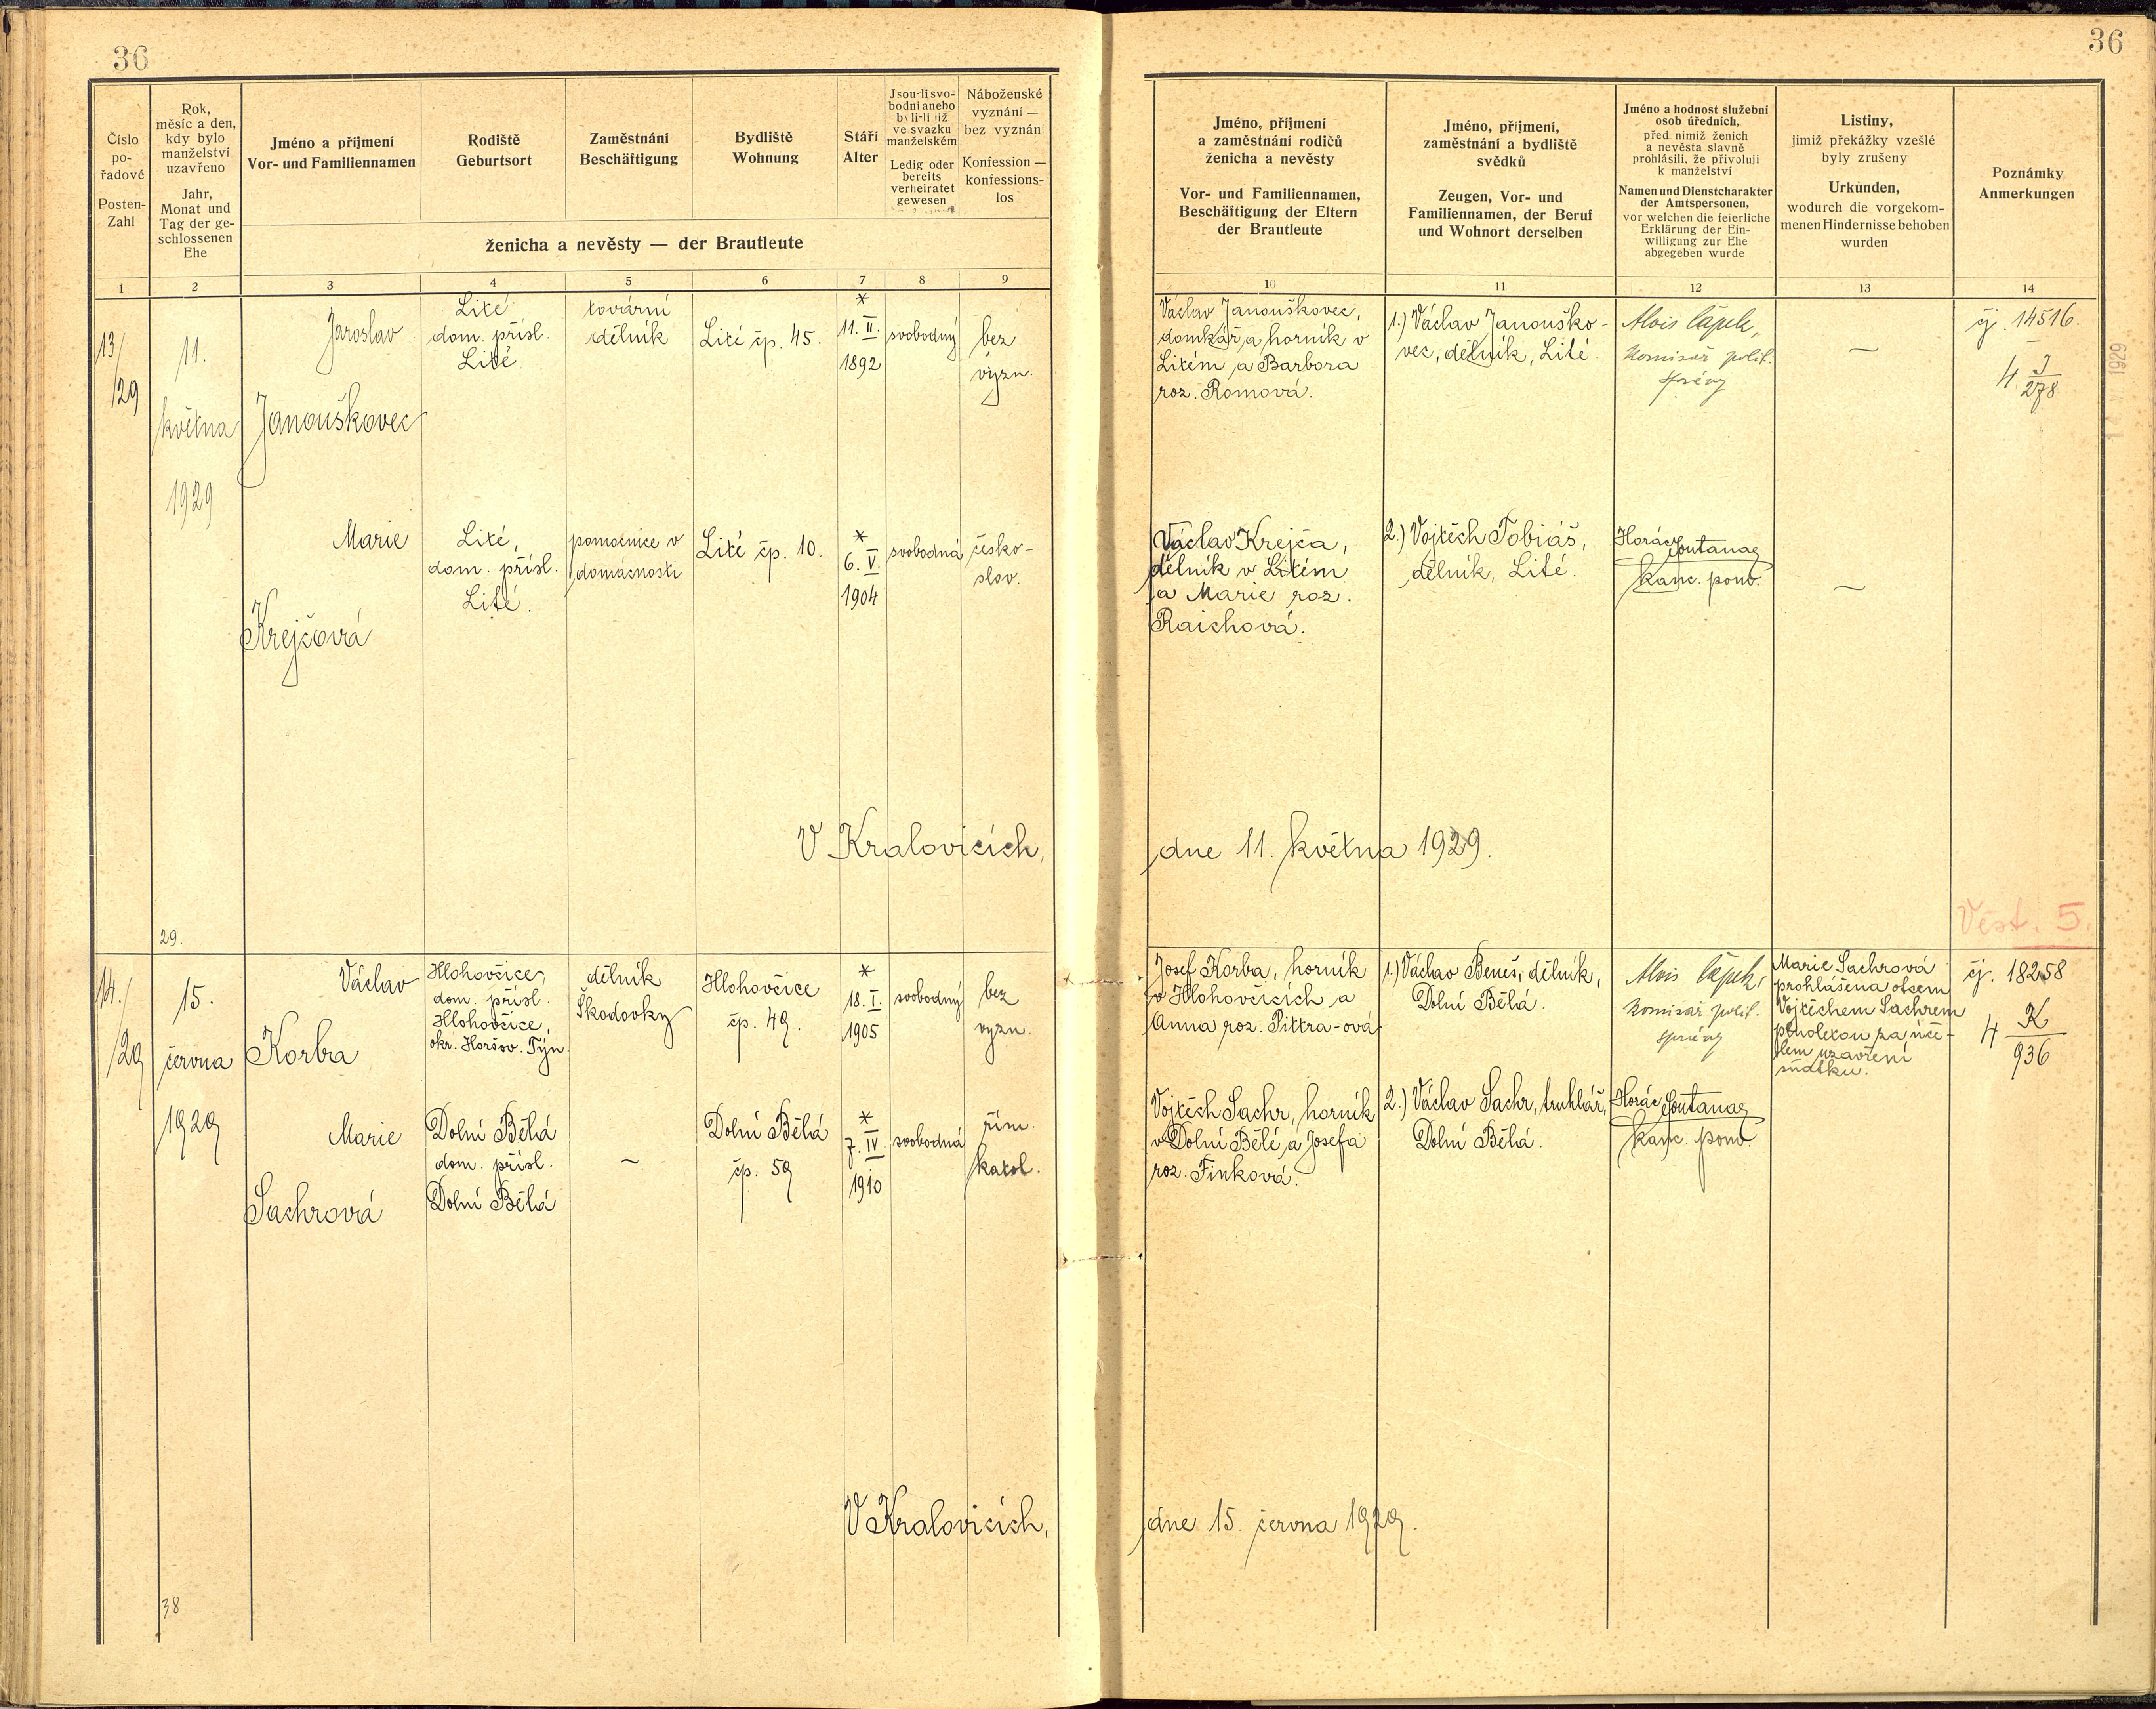 36
36
Číslo
po-
řadové
Posten-
Zahl
Rok,
měsíc a den,
kdy bylo
manželství
uzavřeno
Jahr,
Monat und
Tag der ge-
schlossenen
Ehe
Jméno a příjmení
Vor- und Familiennamen
Rodiště
Geburtsort
Zaměstnání
Beschäftigung
Bydliště
Wohnung
Stáří
Alter
Jsou-li svo-
bodni anebo
byli-li již
ve svazku
manželském
Ledig oder
bereits
verheiratet
gewesen
Náboženské
vyznání —
bez vyznání
Konfession —
konfessions-
los
ženicha a nevěsty — der Brautleute
Jméno, příjmení
a zaměstnání rodičů
ženicha a nevěsty
Vor- und Familiennamen,
Beschäftigung der Eltern
der Brautleute
Jméno, příjmení,
zaměstnání a bydliště
svědků
Zeugen, Vor- und
Familiennamen, der Beruf
und Wohnort derselben
Jméno a hodnost služební
osob úředních,
před nimiž ženich
a nevěsta slavně
prohlásili, že přivolují
k manželství
Namen und Dienstcharakter
der Amtspersonen,
vor welchen die feierliche
Erklärung der Ein-
willigung zur Ehe
abgegeben wurde
Listiny,
jimiž překážky vzešlé
byly zrušeny
Urkunden,
wodurch die vorgekom-
menen Hindernisse behoben
wurden
Poznámky
Anmerkungen
1 2 3 4 5 6 7 8 9 10 11 12 13 14
13/
/29
11.
května
1929
Jaroslav
Janouškovec
Lité
dom. přísl.
Lité
tovární
dělník
Lité čp. 45.
*
11. II.
1892
svobodný
bez
vyzn.
Václav Janouškovec,
domkář a horník v
Litém a Barbora
roz. Romová.
1.) Václav Janouško-
vec, dělník, Lité.
Alois Čapek,
komisař polit.
správy
—
čj. 14516.
4 J
278
1929
Marie
Krejčová
Lité,
dom. přísl.
Lité.
pomocnice v
domácnosti
Lité čp. 10.
*
6. V.
1904
svobodná
česko-
slov.
Václav Krejča,
dělník v Litém
a Marie roz.
Raichová.
2.) Vojtěch Tobiáš,
dělník, Lité.
Horác
kanc. pom.
—
V Kralovicích,
dne 11. května 1929.
Věst. 5.
29.
14./
/29
15.
června
1929
Václav
Korba
Hlohovčice,
dom. přísl.
Hlohovčice,
okr. Horšov. Týn.
dělník
Škodovky
Hlohovčice
čp. 49.
*
18. I.
1905
svobodný
bez
vyzn.
Josef Korba, horník
v Hlohovčicích a
Anna roz. Pittra-ová
1.) Václav Beneš, dělník,
Dolní Bělá.
Alois Čapek,
komisař polit.
správy
Marie Sachrová
prohlášena otcem
Vojtěchem Sachrem
plnoletou za úče-
lem uzavření
sňatku.
čj. 18258
4 K
936
Marie
Sachrová
Dolní Bělá
dom. přísl.
Dolní Bělá
—
Dolní Bělá
čp. 59
*
7. IV.
1910
svobodná
řím.
katol.
Vojtěch Sachr, horník
v Dolní Bělé a Josefa
roz. Finková.
2.) Václav Sachr, truhlář,
Dolní Bělá.
Horác
kanc. pom.
V Kralovicích,
dne 15. června 1929.
38